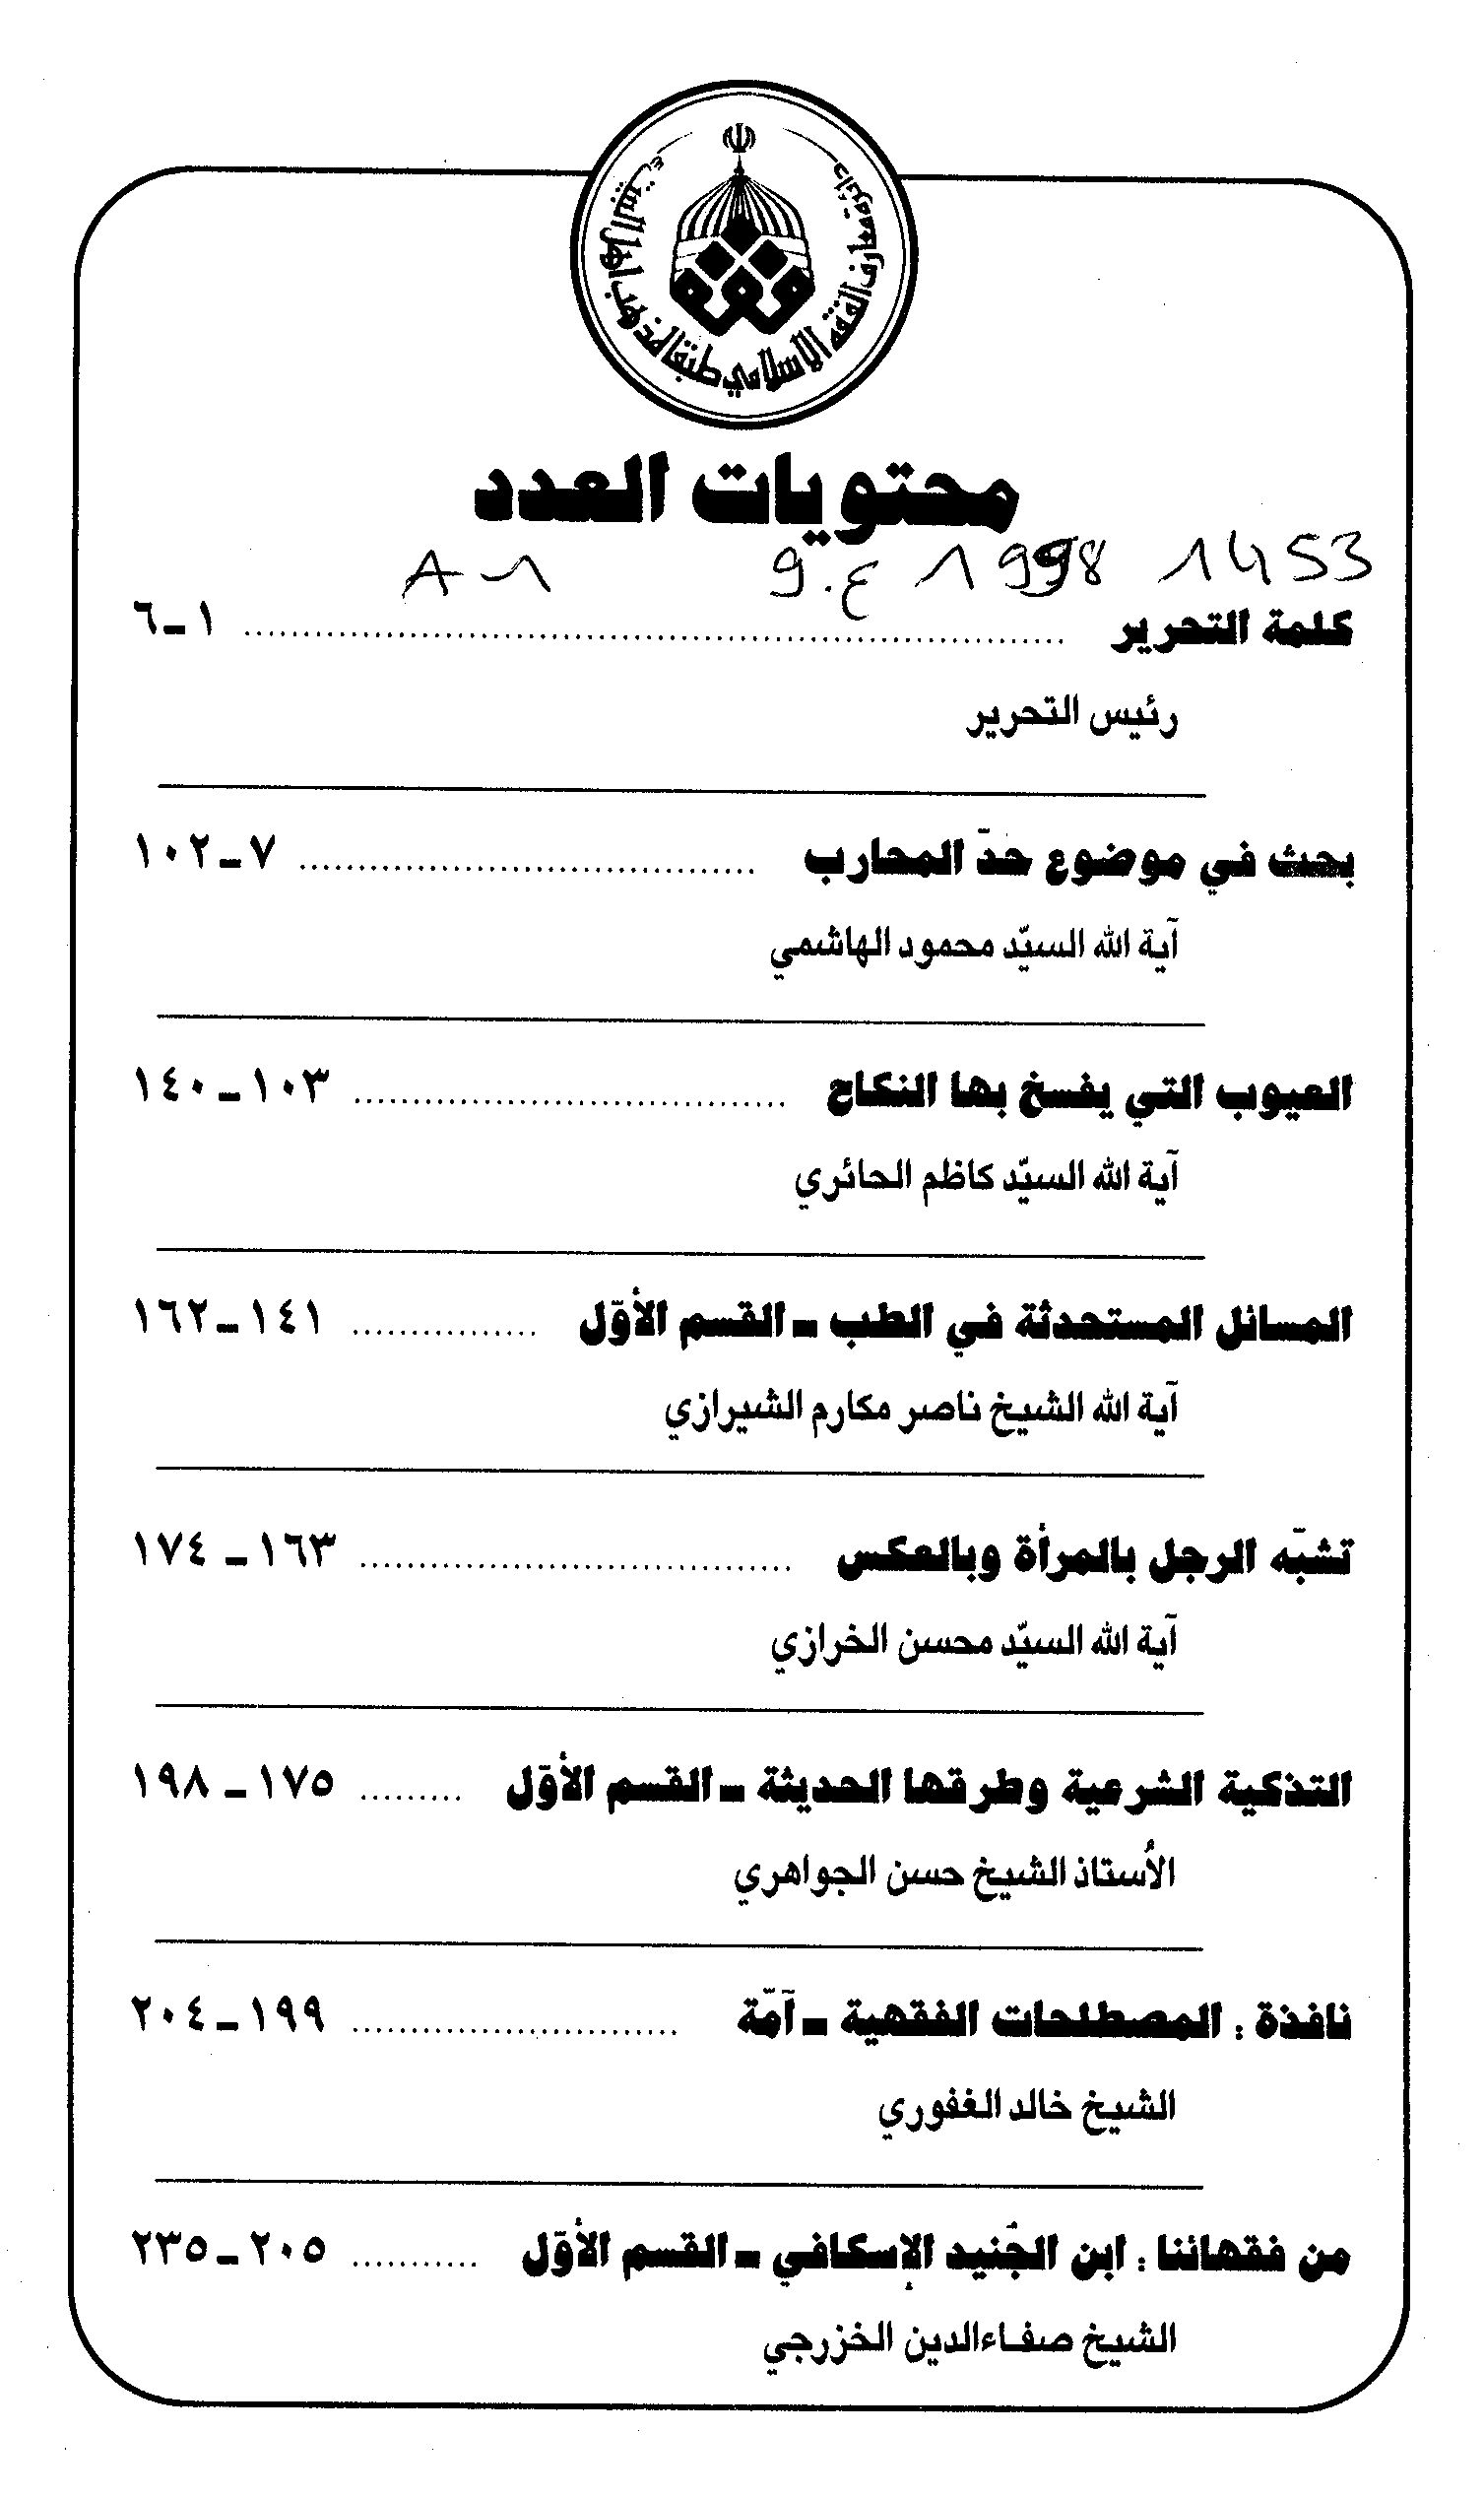 دائرة معارف الفقه الإسلامي طبقا لمذهب أهل البيت
محتويات العدد
1998 1453
كلمة التحرير ........ ١ـ٦
رئيس التحرير
بحث في موضوع حدّ المحارب ........ ٧ـ١٠٢
آية الله السيّد محمود الهاشمي
العيوب التي يفسخ بها النكاح ........ ١٠٣ـ١٤٠
آية الله السيّد كاظم الحائري
المسائل المستحدثة في الطب ـ القسم الأوّل ........ ١٤١ـ١٦٢
آية الله الشيخ ناصر مكارم الشيرازي
تشبّه الرجل بالمرأة وبالعكس ........ ١٦٣ـ ١٧٤
آية الله السيّد محسن الخرازي
التذكية الشرعية وطرقها الحديثة ـ القسم الأوّل ........ ١٧٥ـ ١٩٨
الأستاذ الشيخ حسن الجواهري
نافذة : المصطلحات الفقهية ـ آمّة ........ ١٩٩ـ٢٠٤
الشيخ خالد الغفوري
من فقهائنا : ابن الجُنيد الإسكافي ـ القسم الأوّل ........ ٢٠٥ـ٢٣٥
الشيخ صفاءالدين الخزرجي